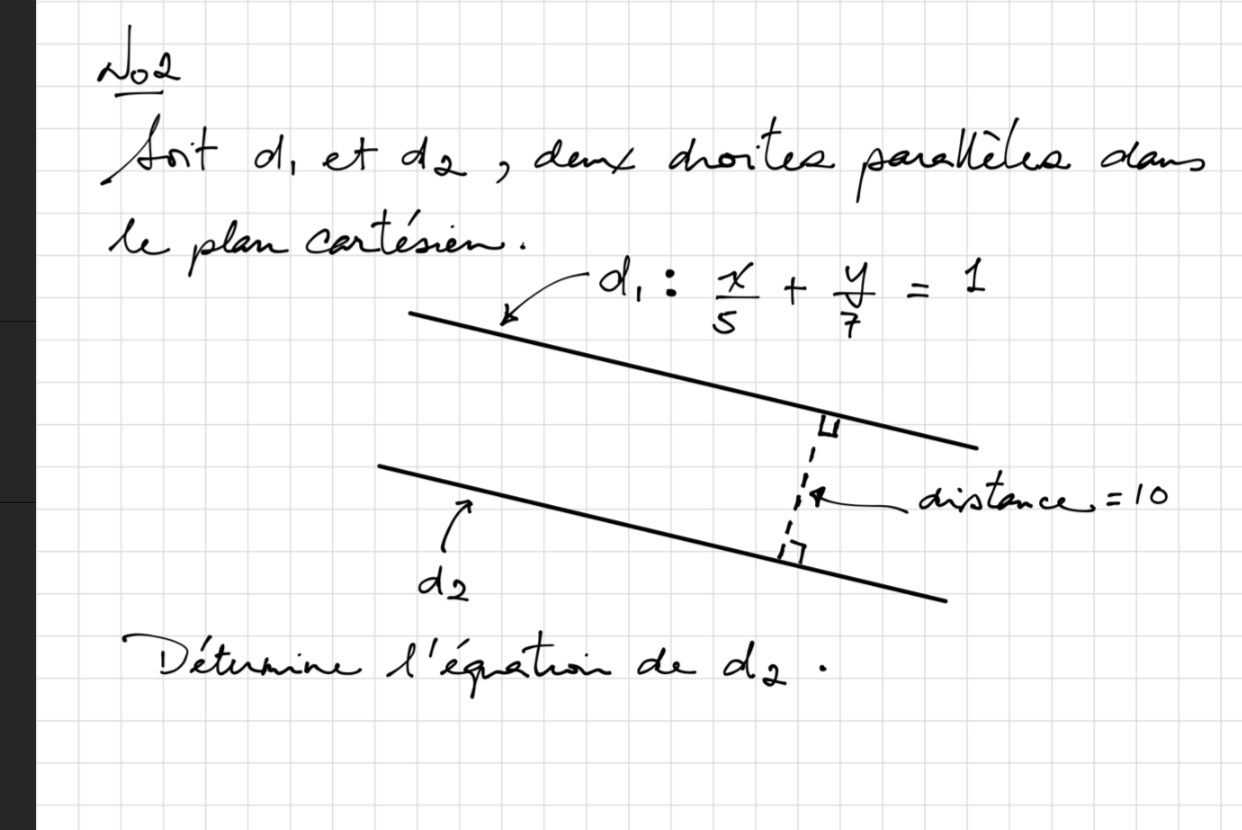 No2
Soit d₁ et d₂, deux droites parallèles dans
le plan cartésien.
d₁ : x/5 + y/7 = 1
distance = 10
d₂
Détermine l'équation de d₂.